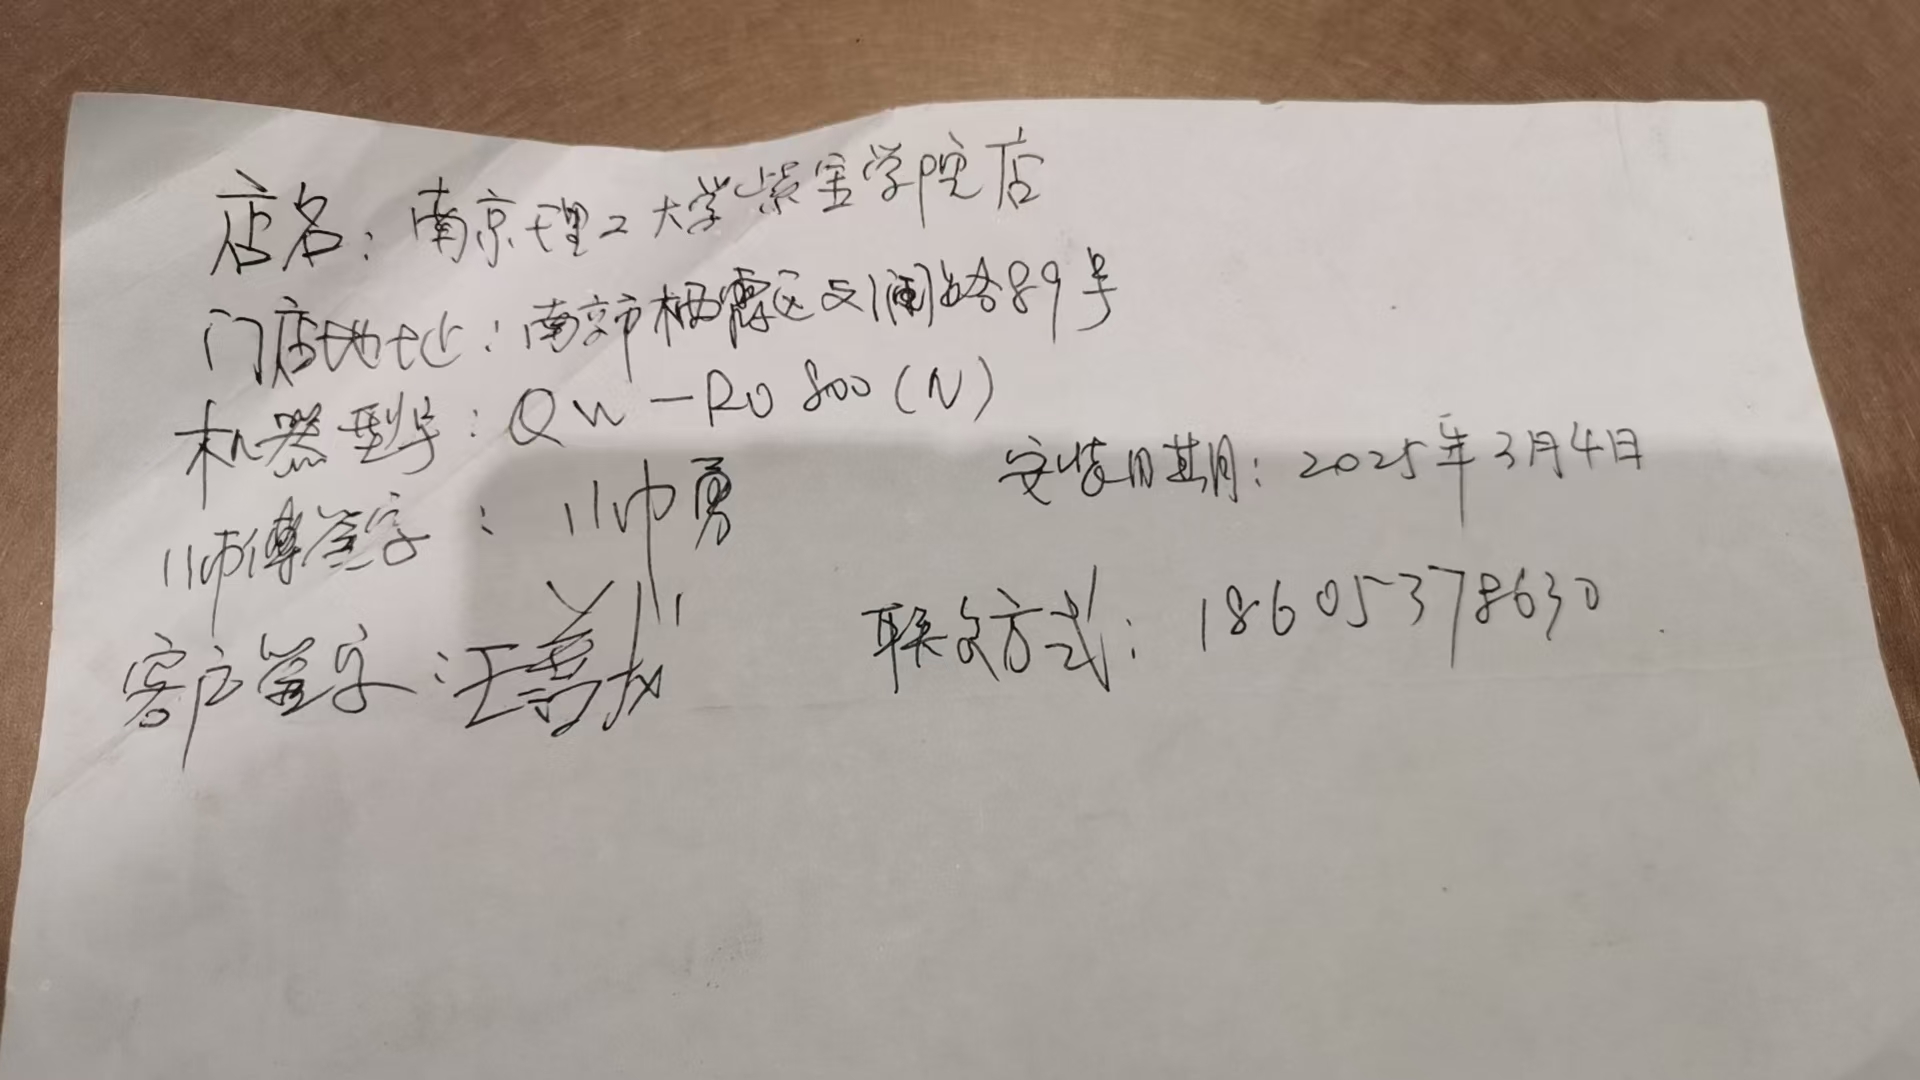 店名：南京理工大学紫金学院店
门店地址：南京市栖霞区文澜路89号
机器型号：QW-RO800(N)
安装日期：2025年3月4日
师傅签字：帅勇
联系方式：18605378630
客户签字：汪